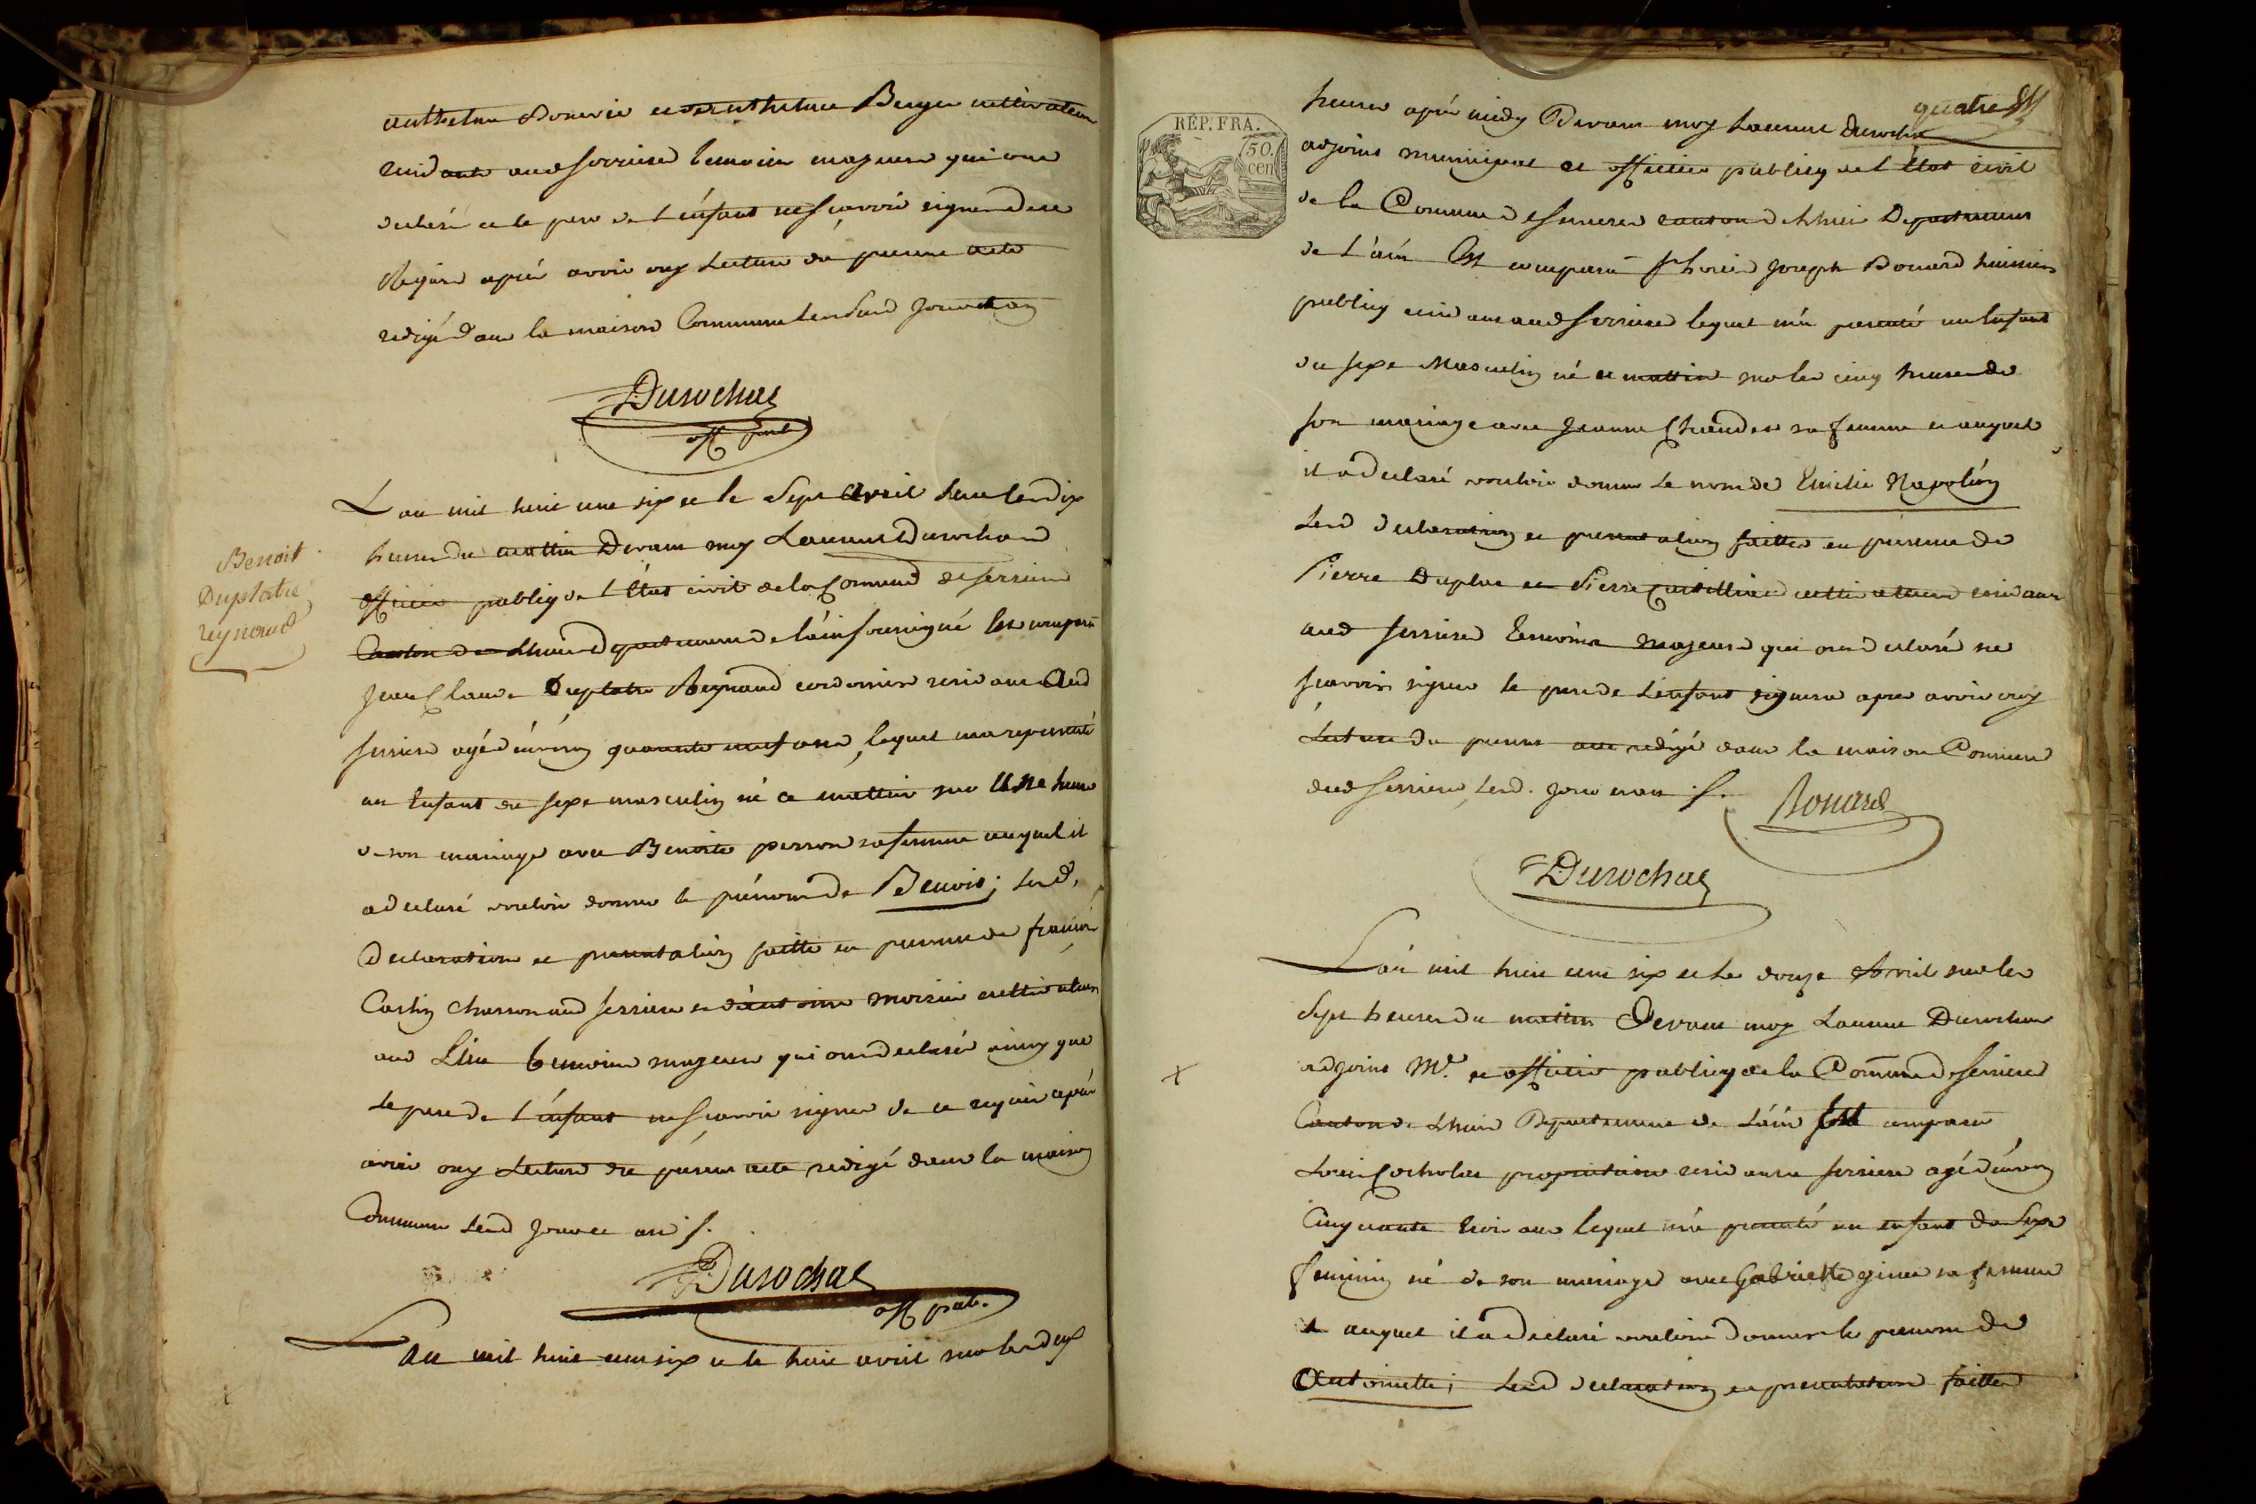 résidants aud Serrieres temoins majeurs qui ont
declaré et le pere de l'énfant ne sçavoir signer de ce
Requis après avoir ouy Lecture du présent acte
redigé dans la maison Commune Lesdits Jour et an
Durochat
off publ
L'an mil huit cent six et le Sept avril sur les dix
heures du mattin Devant moy Laurent Durochat
officier publiq de l'État civil de la Commune de Serrieres
Canton de Lhuis Departement de l'ain soussigné Est comparu
Jean Claude Duplatre Reynaud cordonnier residant aud
Serrieres agé d'énviron quarante neuf ans, lequel m'a representé
un Enfant du sexe masculin né ce mattin sur Une heure
de son mariage avec Benoite perron sa femme auquel il
a declaré vouloir donner le prénom de Benoit; Lesd.
Benoit
Duplatre
reynaud
Declaration et presentation faitte en presence de françois
Charron aud Serrieres cultivateurs
aud Lieu temoins majeurs qui ont declaré ainsy que
Le pere de l'énfant ne sçavoir signer de ce requis après
avoir ouy Lecture du présent acte redigé dans la maison
Commune Lesd Jour et an /.
Durochat
off pub.
L'an mil huit cent six et le huit avril sur les dix
quatre
RÉP. FRA.
50.
cen
heures après midy Devant moy Laurent Durochat
adjoint municipal et officier publiq de l'État civil
de la Commune de Serrieres canton de Lhuis Departement
de L'ain Est comparu Joseph Bonard huissier
publiq residant aud Serrieres lequel m'a presenté un Enfant
du sexe Masculin né ce mattin sur les cinq heures de
son mariage avec Jeanne sa femme et auquel
il a declaré vouloir donner Le nom de Emilie Napoléon
Lesd declaration et presentation faittes en presence de
Pierre Duplatre et Pierre cultivateurs residants
aud Serrieres temoins majeurs qui ont declaré ne
sçavoir signer le pere de L'enfant signera apres avoir ouy
Lecture du present acte redigé dans la maison Commune
dud Serrieres, Lesd. Jour et an /.
Bonard
Durochat
L'an mil huit cent six et Le douze Avril sur les
Sept heures du mattin Devant moy Laurent Durochat
X
adjoint M. et officier publiq de la Commune de Serrieres
Canton de Lhuis Departement de L'ain Est comparu
Louis propriétaire residant a Serrieres agé d'énviron
Cinquante trois ans lequel m'a presenté un enfant du Sexe
feminin né de son mariage avec Gabrielle sa femme
et auquel il a declaré vouloir donner le prenom de
Antoinette; Lesd declaration et presentation faittes